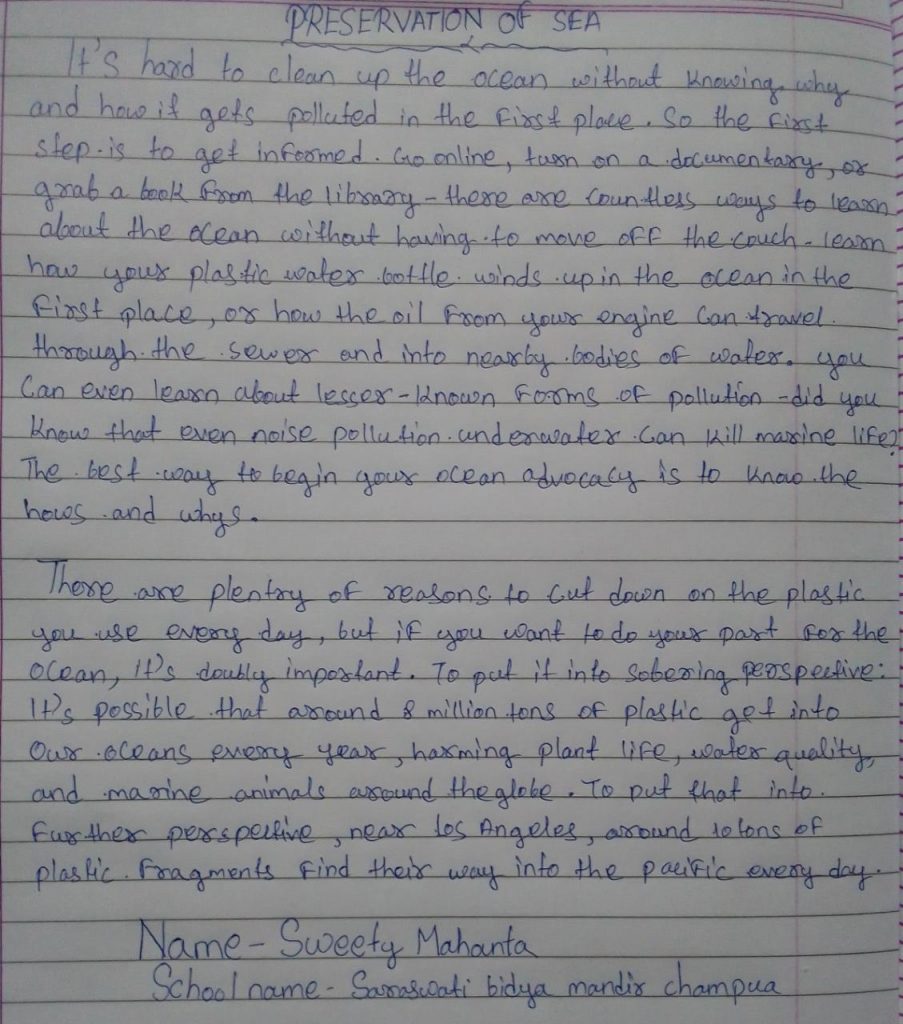 PRESERVATION OF SEA
It's hard to clean up the ocean without knowing why
and how it gets polluted in the first place. So the first
step is to get informed. Go online, turn on a documentary, or
grab a book from the library - there are countless ways to learn
about the ocean without having to move off the couch. learn
how your plastic water bottle winds up in the ocean in the
first place, or how the oil from your engine can travel
through the sewer and into nearby bodies of water. you
Can even learn about lesser-known forms of pollution - did you
know that even noise pollution underwater can kill marine life?
The best way to begin your ocean advocacy is to know the
hows and whys.
There are plentry of reasons to cut down on the plastic
you use every day, but if you want to do your part for the
ocean, It's doubly important. To put it into sobering perspective:
It's possible that around 8 million tons of plastic get into
our oceans every year, harming plant life, water quality,
and marine animals around the globe. To put that into
further perspective, near los Angeles, around 10 tons of
plastic fragments find their way into the pacific every day.
Name - Sweety Mahanta
School name - Saraswati bidya mandir champua